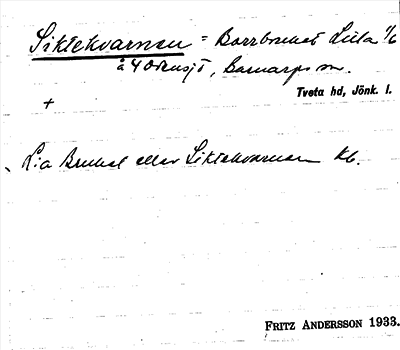 Siktekvarnen = Barrbruket Lilla 1/6
å Y Odensjö, Barnarps sn.
Tveta hd, Jönk. l.
+
L:a Bruket eller Siktekvarnen kb.
FRITZ ANDERSSON 1933.